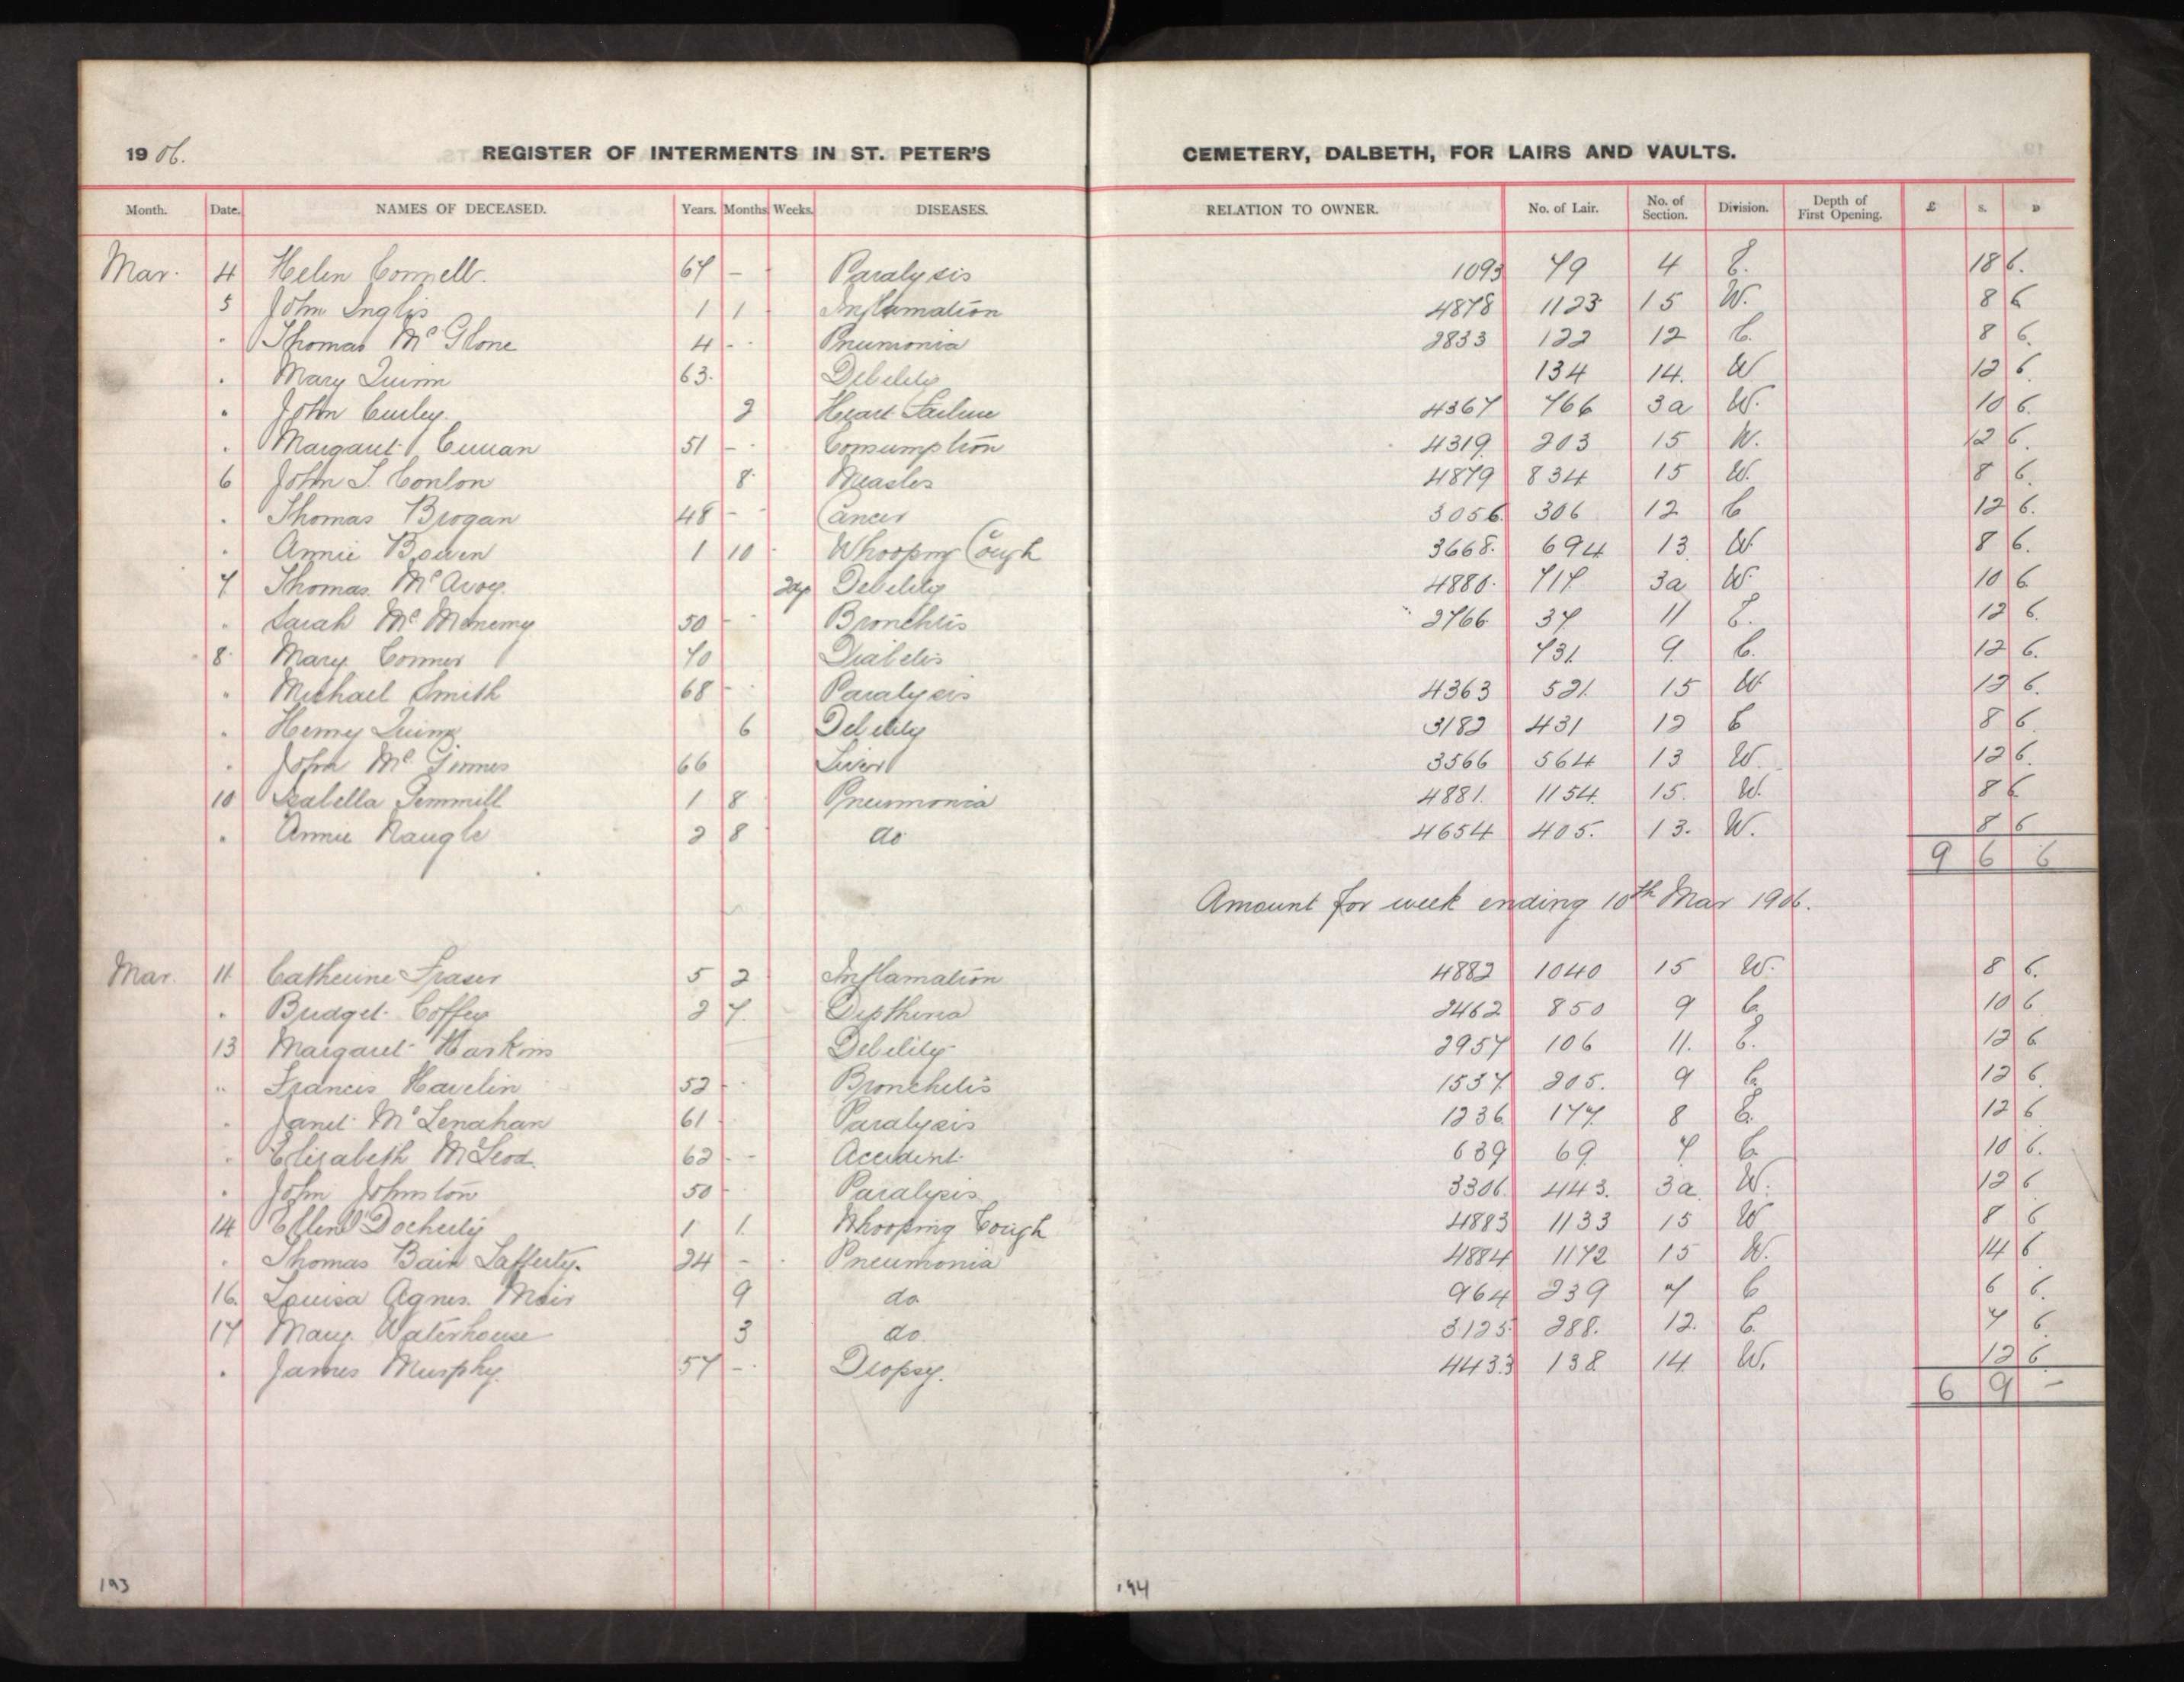 1906. REGISTER OF INTERMENTS IN ST. PETER'S CEMETERY, DALBETH, FOR LAIRS AND VAULTS.
Month. Date. NAMES OF DECEASED. Years. Months. Weeks. DISEASES. RELATION TO OWNER. No. of Lair. No. of Section. Division. Depth of First Opening. £ s. D
Mar. 4 Helen Connell. 67 - Paralysis 1093 79 4 E. 18 6.
5 John Inglis 1 1 Inflamation 4878 1123 15 W. 8 6
" Thomas McGlone 4 - - Pneumonia 2833 122 12 C. 8 6.
" Mary Quinn 63. Debility 134 14. W 12 6.
" John Curley. 2 Heart Failure 4367 766 3a W. 10 6.
" Margaret Curran 51 - Consumption 4319. 203 15 W. 12 6.
6 John J. Conlon 8 Measles 4879 834 15 W. 8 6.
" Thomas Brogan 48 - - Cancer 3056. 306 12 C 12 6.
" Annie Bowen 1 10 Whooping Cough 3668. 694 13 W. 8 6.
7 Thomas McAvoy. Debility 4880. 717. 3a W. 10 6
" Sarah McMenemy 50 - Bronchtis 2766 37 11 E. 12 6.
8 Mary Connor 70 Diabetis 731. 9. C. 12 6.
" Michael Smith 68 - Paralysis 4363 521. 15 W 12 6.
" Henry Quinn 6 Debility 3182 431 12 C 8 6.
" John McGinnes 66 Liver 3566 564 13 W. 12 6.
10 Isabella Gemmill 1 8 Pneumonia 4881. 1154. 15. W. 8 6
" Annie Naugle 2 8 do 4654 405. 13. W. 8 6
9 6 6
Amount for week ending 10th Mar 1906.
Mar. 11 Catherine Fraser 5 2 Inflamation 4882 1040 15 W. 8 6.
" Bridget Coffey 2 7. Dipthena 2462 850 9 C. 10 6
13 Margaret Harkins Debility 2957 106 11. E. 12 6
" Francis Havelin 52 - Bronchitis 1537. 205. 9 C. 12 6.
" Janet McLenahan 61 Paralysis 1236. 177. 8 E. 12 6
" Elizabeth McLeod. 62 - - Accident 639 69. 7 C. 10 6.
" John Johnston 50 - Paralysis 3306. 443. 3a. W. 12 6
14 Ellen Docherty 1 1. Whooping Cough 4883 1133 15 W 8 6
" Thomas Bain Lafferty. 24 - Pneumonia 4884 1172 15 W. 14 6
16. Louisa Agnes. Moir 9 do 964 239 7 C 6 6.
17 Mary. Waterhouse 3 do. 3125. 288. 12. C. 7 6
" James Murphy. 57 - Dropsy. 4433 138. 14 W. 12 6.
6 9 -
193 194